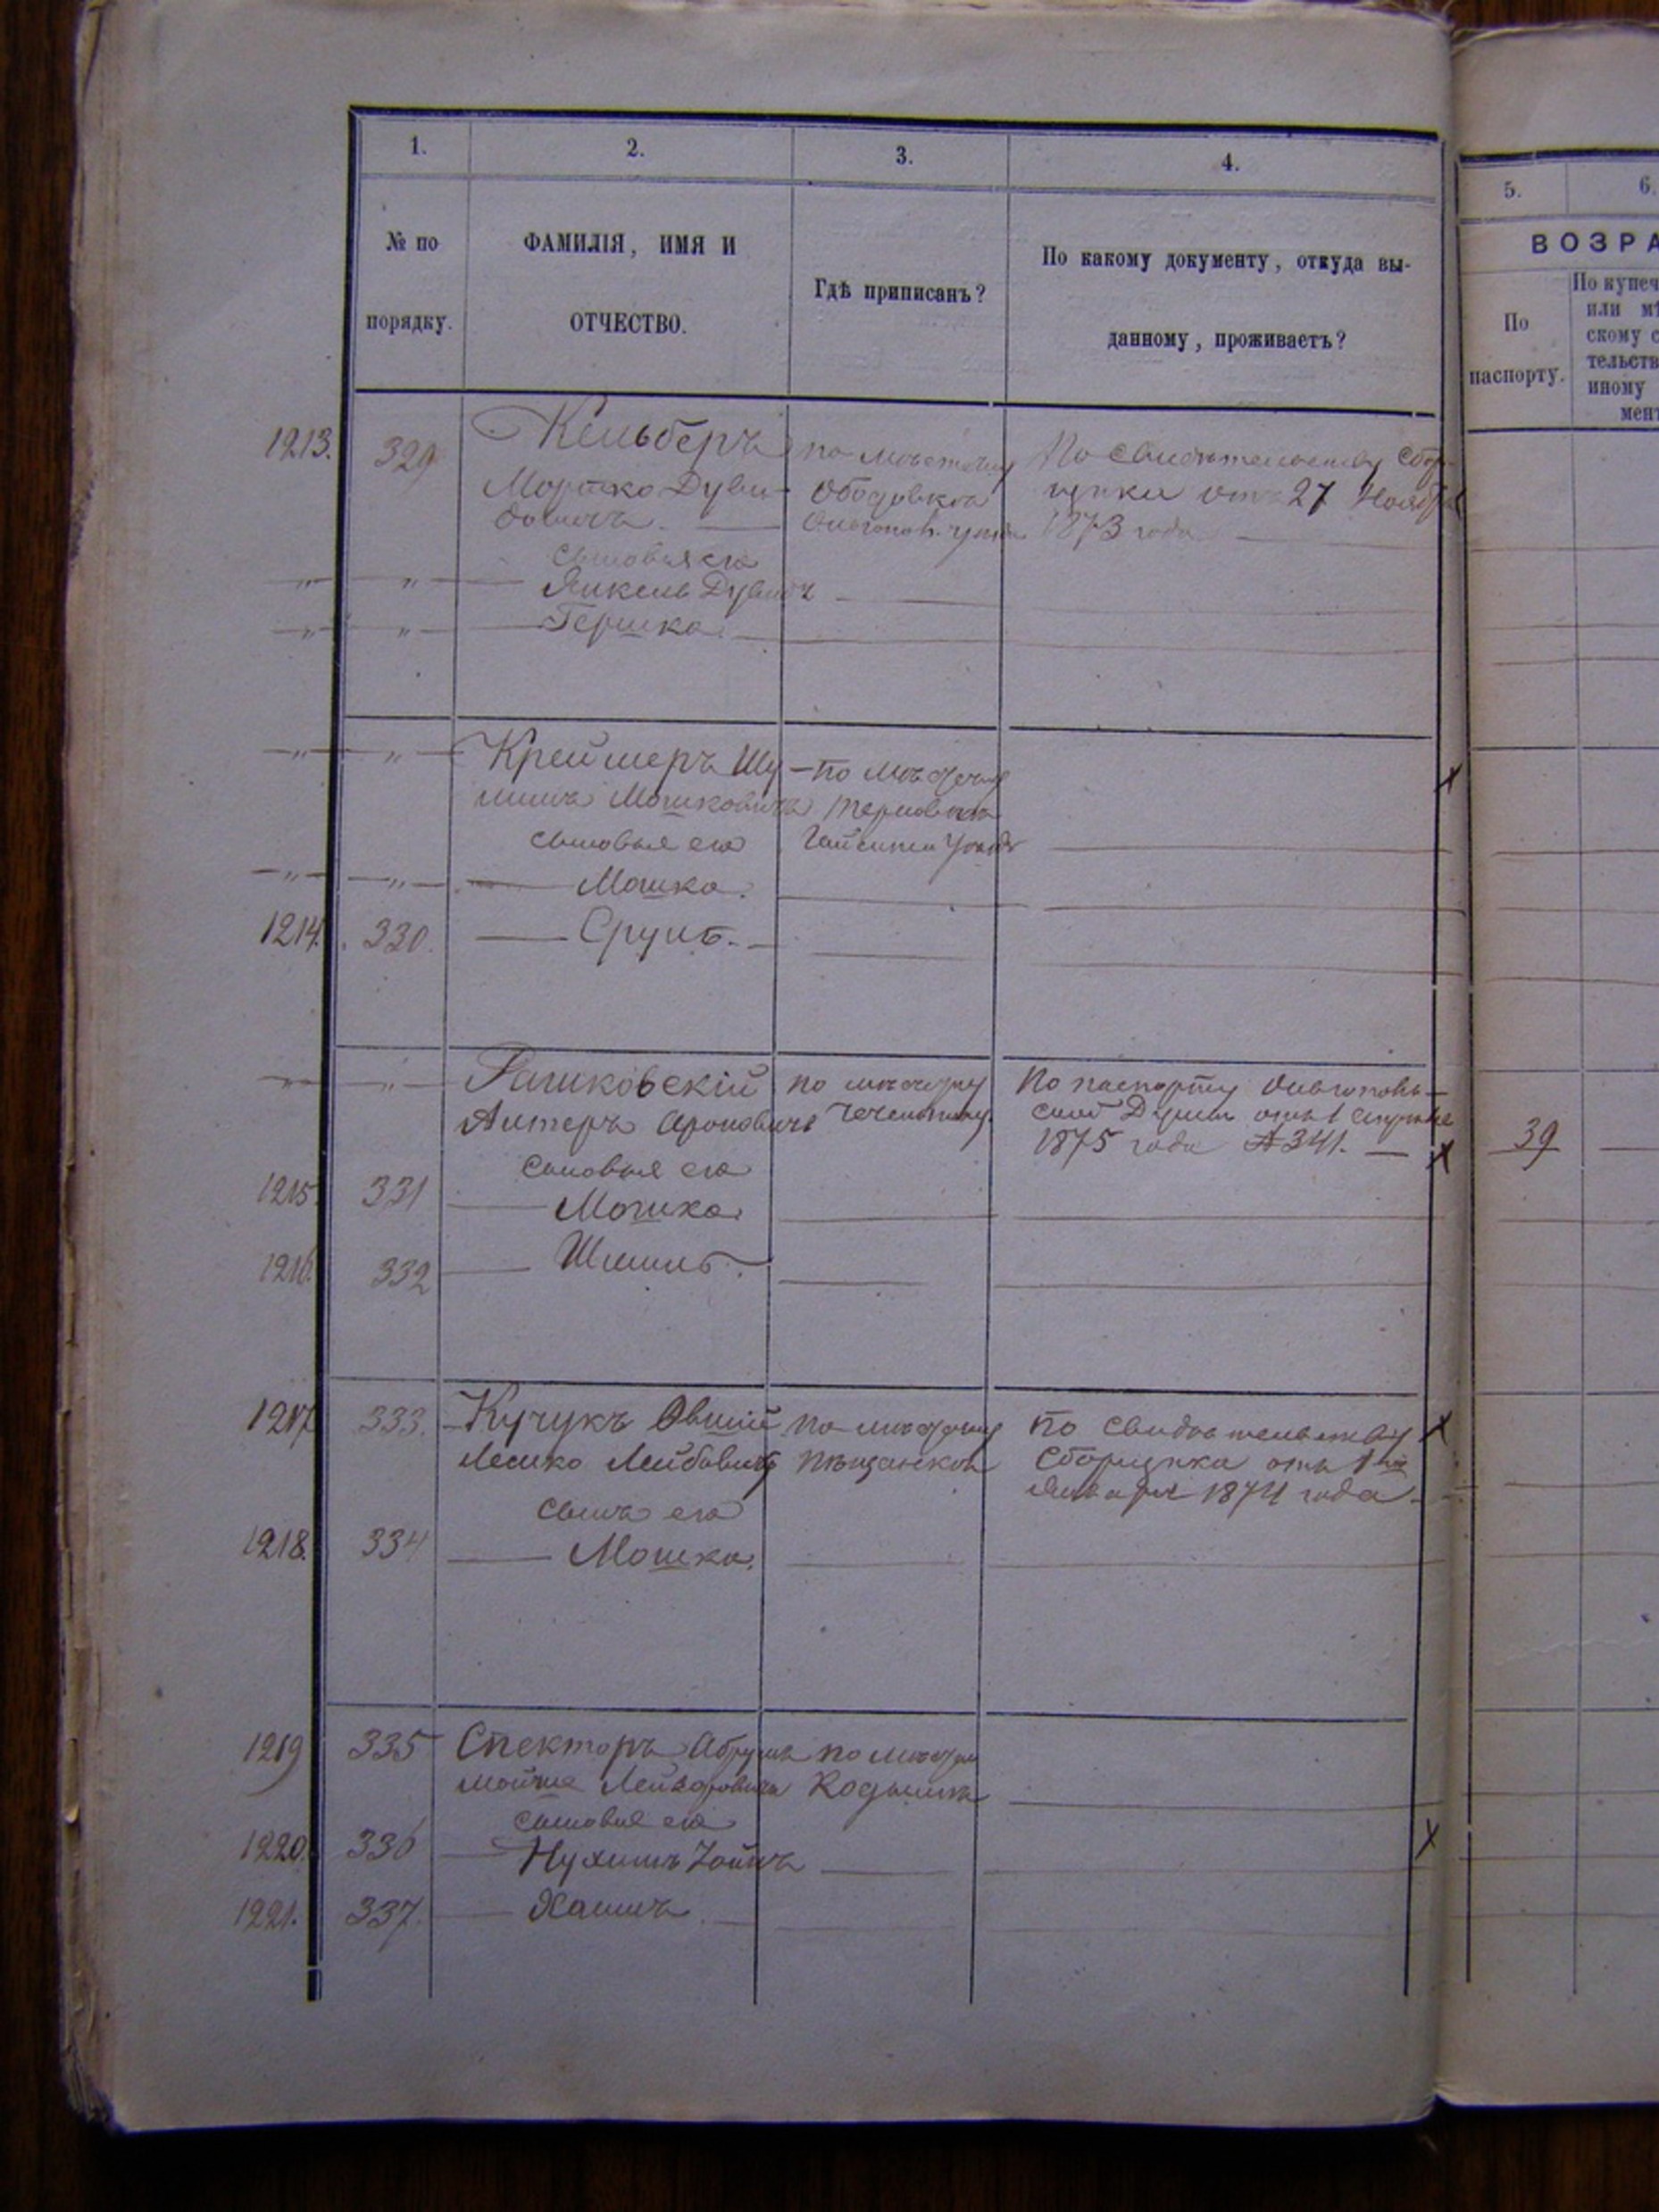 1. 2. 3. 4.
5. 6.
№ по порядку.
ФАМИЛІЯ, ИМЯ И
ОТЧЕСТВО.
Гдѣ приписанъ?
По какому документу, откуда вы-
данному, проживаетъ?
ВОЗРА
По
паспорту.
По купеч
или мѣ
скому с
тельств
иному
мент
1213. 329 Кельберъ
Мортко Дуви-
довичъ.
по мѣстечку
Ободовкѣ
Ольгопов. уѣзда
По свидѣтельству Сбор-
щика отъ 27 Ноября
1873 года
сыновья его
" " Янкель Дувидъ
" " Гершко
" " Креймеръ Шу-
Мошковичъ
по мѣстечку
Терновкѣ
Гайсин уѣзда
сыновья его
" " Мошко.
1214. 330. Сруль.
" " Рашковскій
Алтеръ Ароновичъ
по мѣстечку
Чечельнику.
По паспорту Ольгополь-
ской Думы отъ 1
1875 года № 341.
39
сыновья его
1215 331 Мошко.
1216. 332 Шмиль.
1217 333. Кучукъ Овшій
Лейбовичъ
по мѣстечку
Пѣщанкѣ
По свидѣтельству
Сборщика отъ 1го
Января 1874 года.
сынъ его
1218. 334 Мошко.
1219 335 Спекторъ Абрумъ
Мойше Лейзоровичъ
по мѣстеч
Кодымѣ
сыновья его
1220. 336 Нухимъ
1221. 337. Хаимъ